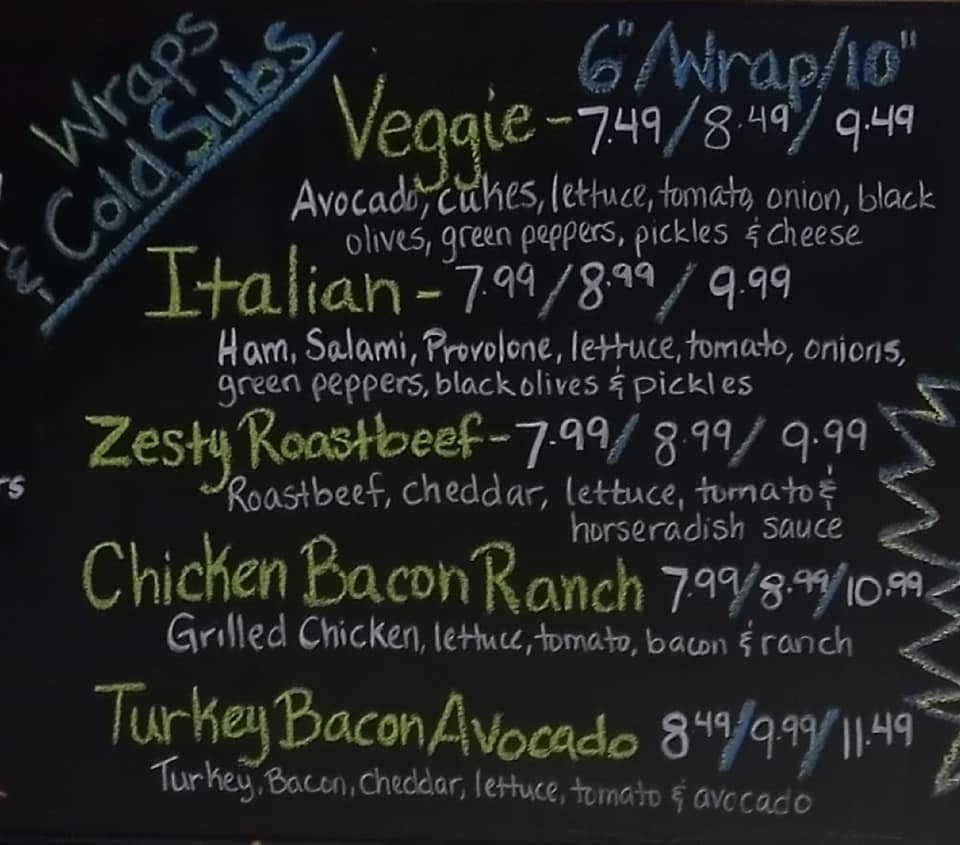 Wraps
& Cold Subs
6"/Wrap/10"
Veggie - 7.49/8.49/ 9.49
Avocado, cukes, lettuce, tomato, onion, black
olives, green peppers, pickles & cheese
Italian - 7.99/8.99/ 9.99
Ham, Salami, Provolone, lettuce, tomato, onions,
green peppers, black olives & pickles
Zesty Roastbeef - 7.99/ 8.99/ 9.99
Roastbeef, cheddar, lettuce, tomato &
horseradish sauce
rs
Chicken Bacon Ranch 7.99/8.99/10.99
Grilled Chicken, lettuce, tomato, bacon & ranch
Turkey Bacon Avocado 8.49/9.99/11.49
Turkey, Bacon, Cheddar, lettuce, tomato & avocado